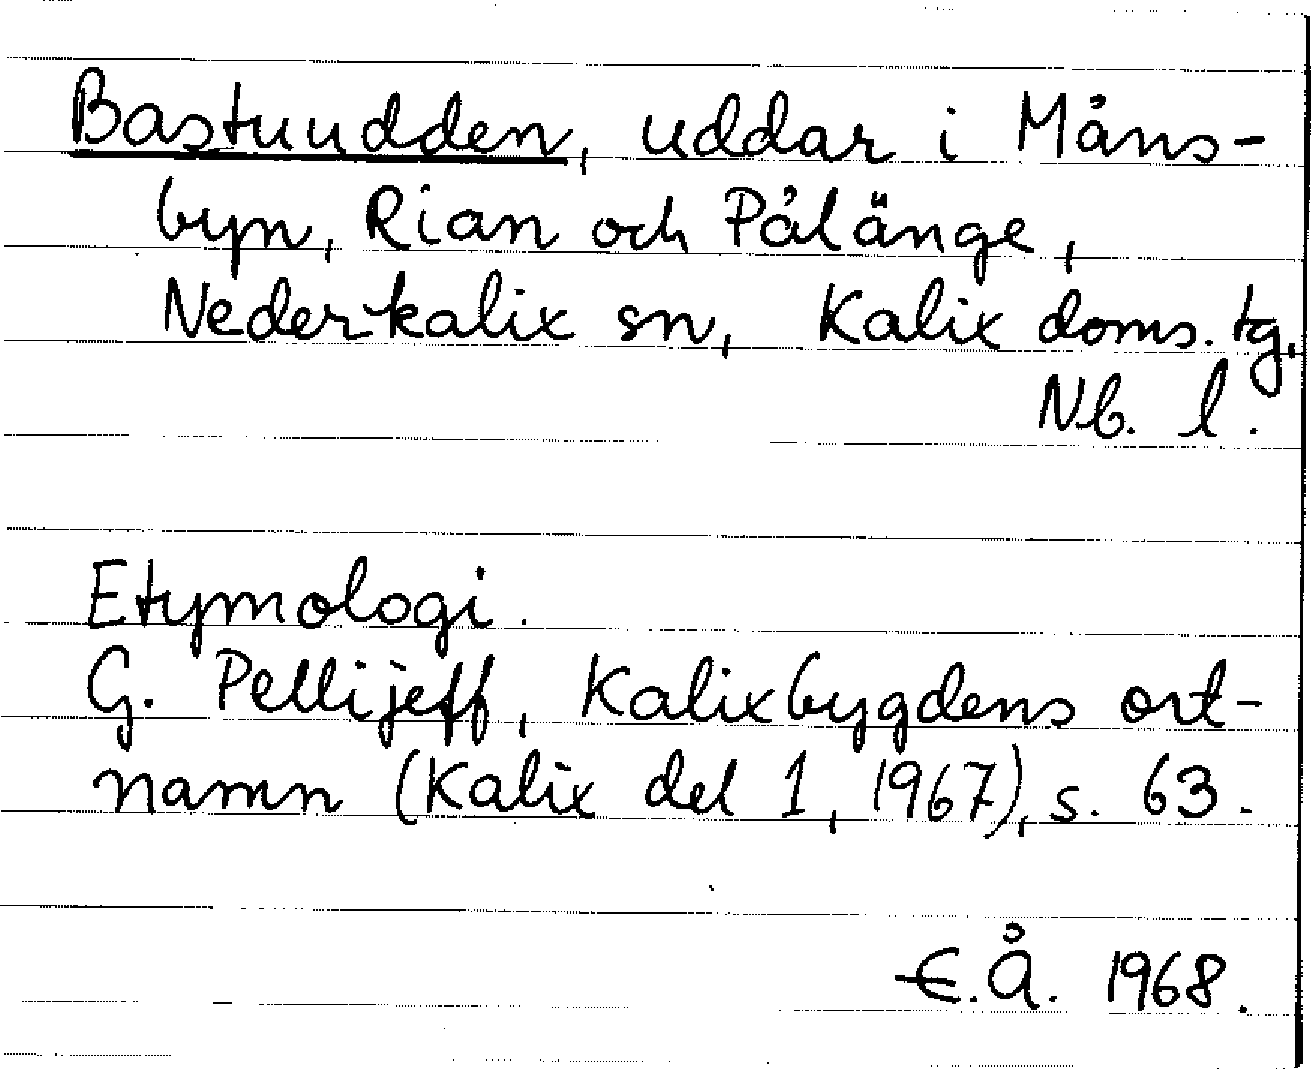 Bastuudden, uddar i Måns-
byn, Rian och Pålänge,
Nederkalix sn, Kalix doms. tg,
Nb. l.
Etymologi.
G. Pellijeff, Kalixbygdens ort-
namn (Kalix del 1, 1967), s. 63.
E.Å. 1968.